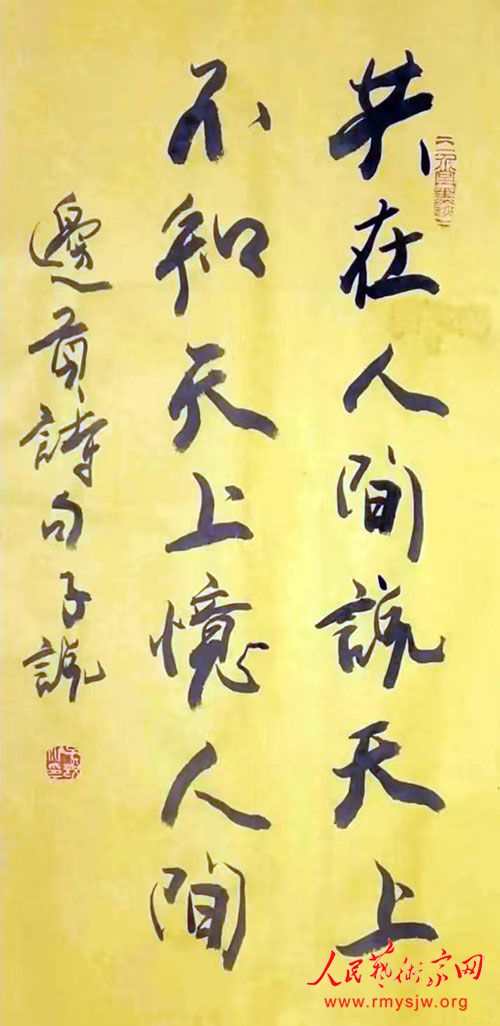 共在人间说天上
不知天上憶人间
邊貢詩句子説
人民藝術家网
www.rmysjw.org